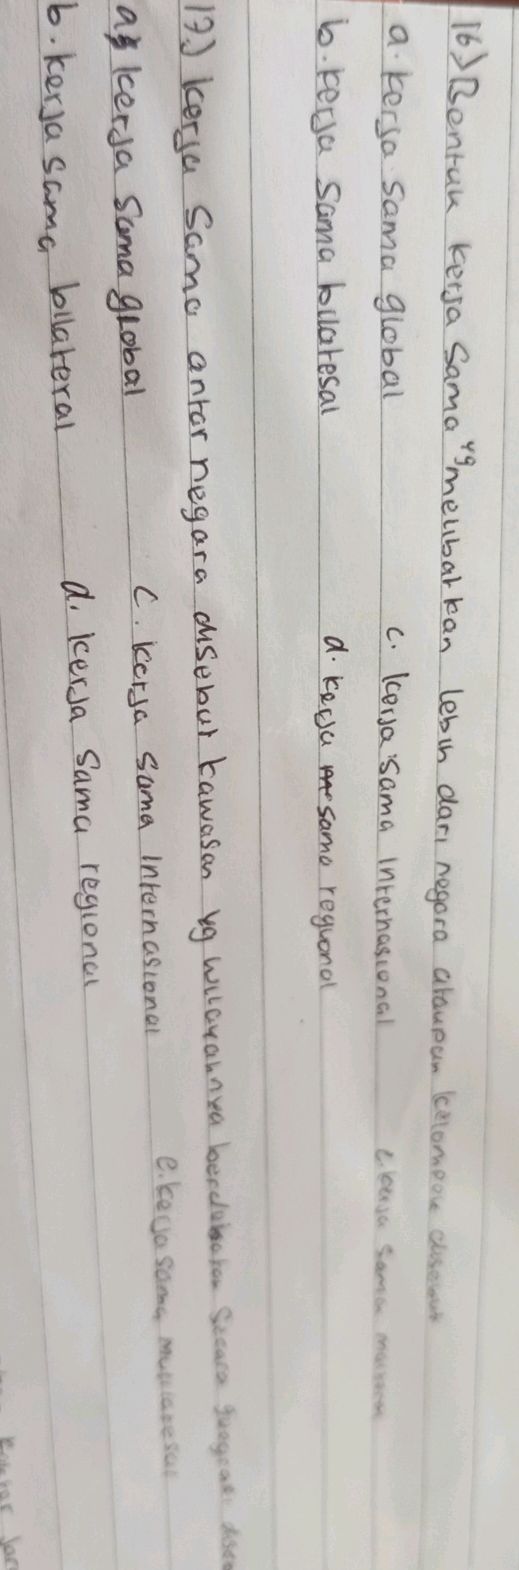 16) Bentuk kerja sama yg melibatkan lebih dari negara ataupun kelompok disebut
a. kerja sama global c. kerja sama Internasional e. kerja sama
b. kerja sama bilatesal d. kerja sama regional
17.) kerja sama antar negara disebut kawasan yg wilayahnya berdekatan secara geografi
a. kerja sama global c. kerja sama Internasional e. kerja sama multilatesal
b. kerja sama bilateral d. kerja sama regional